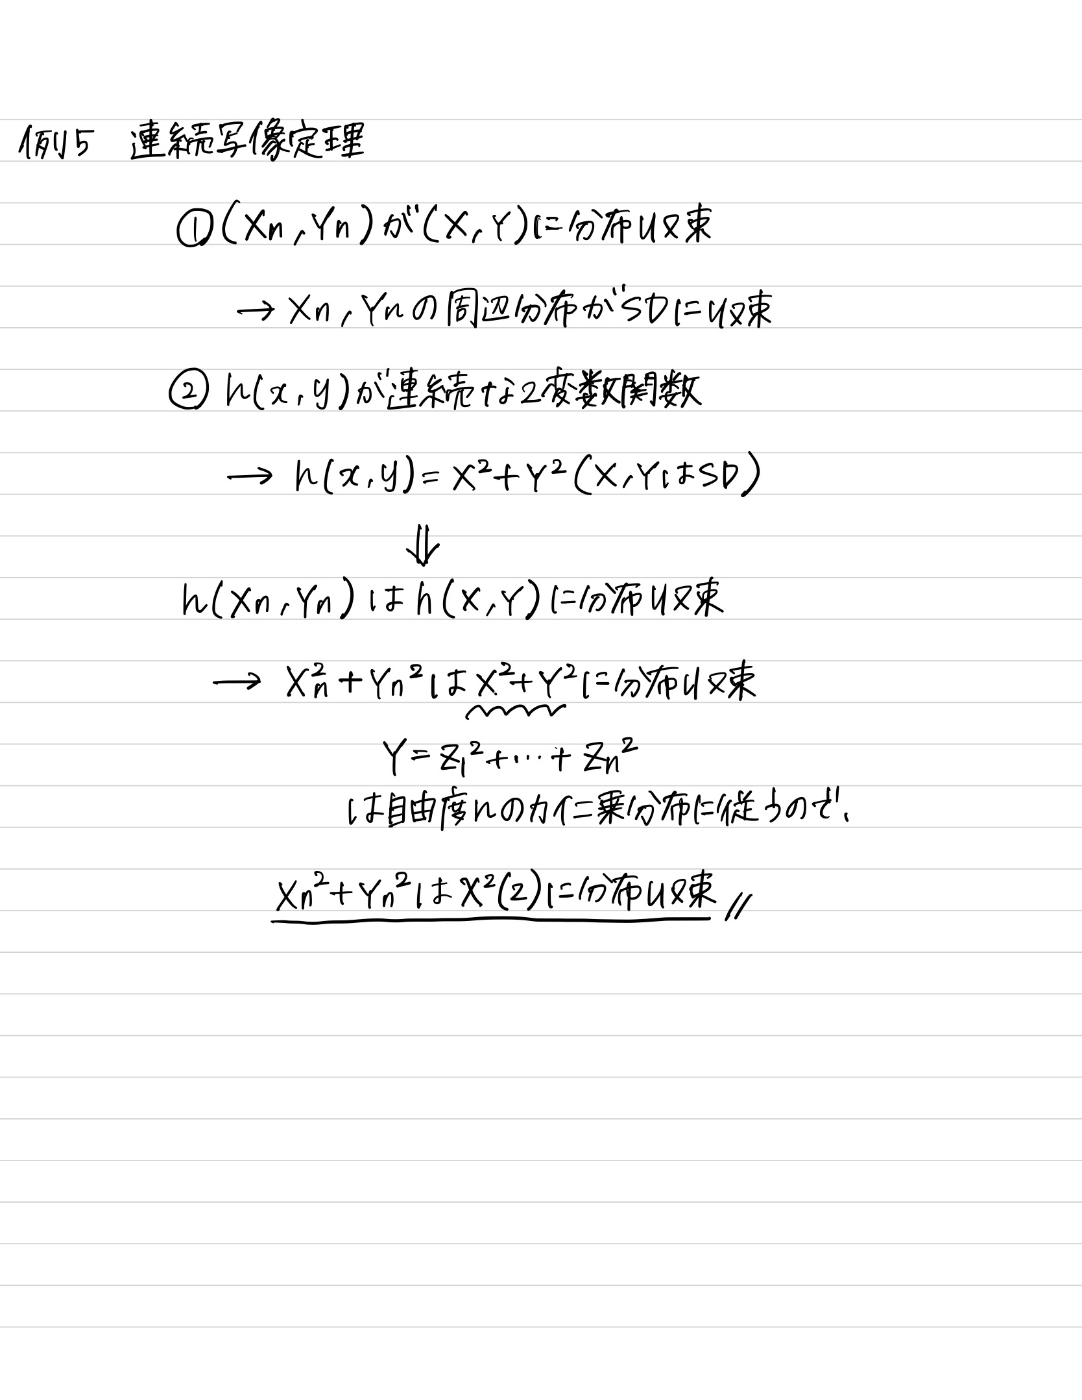 例5 連続写像定理
①(Xn, Yn)が(X, Y)に分布収束
→ Xn, Ynの周辺分布がSDに収束
② h(x, y)が連続な2変数関数
→ h(x, y) = X² + Y² (X, YはSD)
⇓
h(Xn, Yn)はh(X, Y)に分布収束
→ Xn² + Yn²はX² + Y²に分布収束
Y = Z₁² + … + Zn²
は自由度nのカイ二乗分布に従うので、
Xn² + Yn²はχ²(2)に分布収束 //